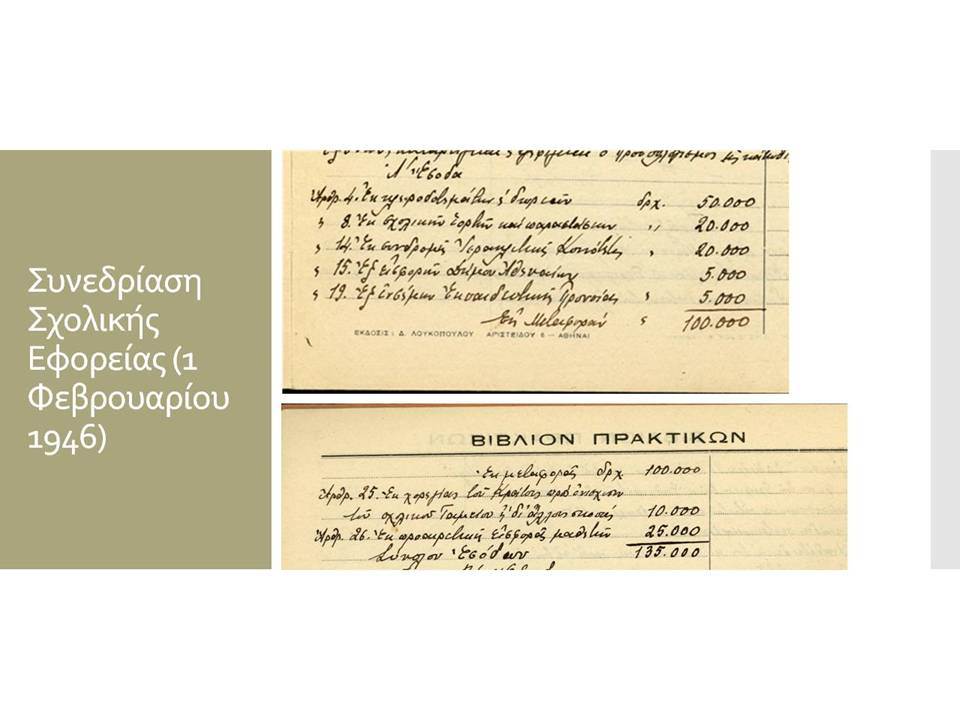 Συνεδρίαση
Σχολικής
Εφορείας (1
Φεβρουαρίου
1946)
Α' Έσοδα
Άρθρ. 4. Εκ κληροδοτημάτων ή δωρεών δρχ. 50.000
" 8. Εκ σχολικών εορτών και παραστάσεων " 20.000
" 14. Εκ συνδρομής Ισραηλιτικής Κοινότητος " 20.000
" 15. Εξ εισφορών Δήμου Αθηναίων 5.000
" 19. Εξ Ενσήμων Εκπαιδευτικής Προνοίας " 5.000
Εις Μεταφοράν " 100.000
ΕΚΔΟΣΙΣ : Δ. ΛΟΥΚΟΠΟΥΛΟΥ ΑΡΙΣΤΕΙΔΟΥ 6 – ΑΘΗΝΑΙ
ΒΙΒΛΙΟΝ ΠΡΑΚΤΙΚΩΝ
Εκ μεταφοράς δρχ. 100.000
Άρθρ. 25. Εκ χορηγίας του Κράτους προς ενίσχυσιν
του σχολικού Ταμείου ή δι' άλλους σκοπούς 10.000
Άρθρ. 26. Εκ προαιρετικής εισφοράς μαθητών 25.000
Σύνολον Εσόδων 135.000